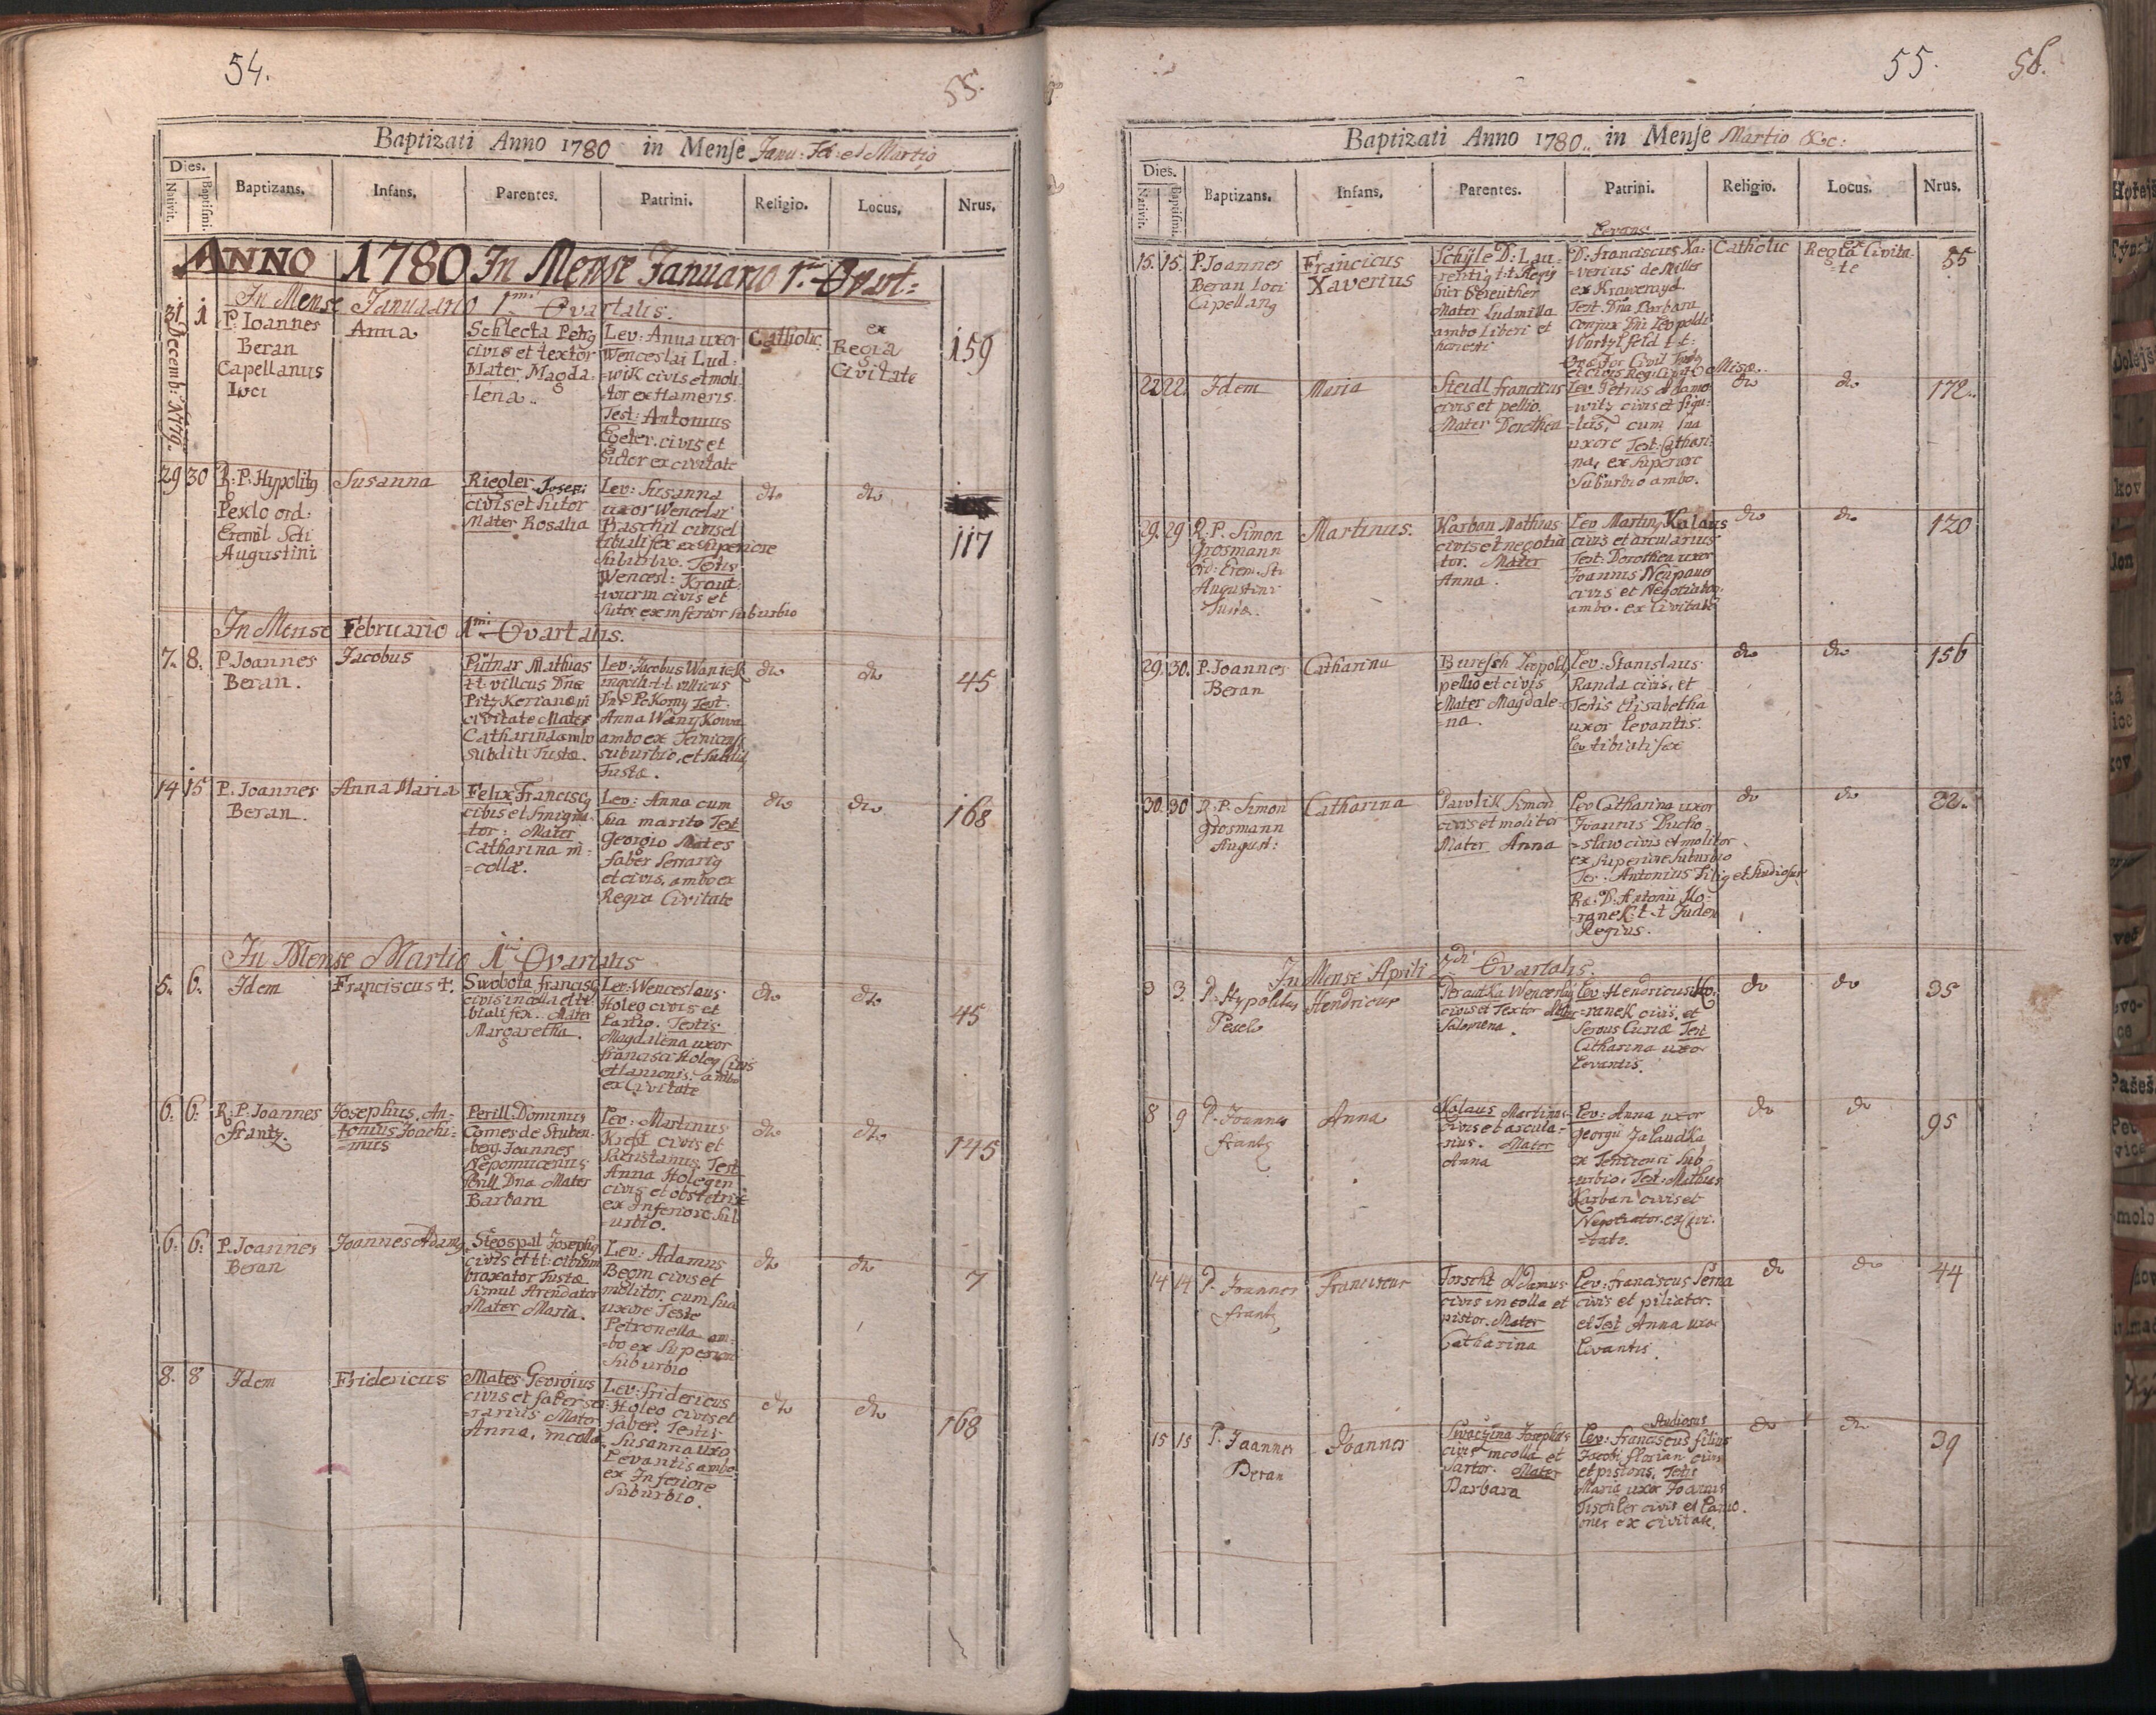 54.
55.
Baptizati Anno 1780 in Menſe Janu: Feb: et Martio
Dies.
Nativit.
Baptiſmi.
Baptizans.
Infans.
Parentes.
Patrini.
Religio.
Locus.
Nrus.
ANNO 1780 In Mense Januario 1. Qvart:
In Mense Januario 1mi Qvartalis.
31 Decemb: 1
P. Ioannes
Beran
Capellanus
Loci
Anna
Schlecta Petrg
civis et textor
Mater Magda
=lena..
Lev: Anna uxor
Wenceslai Lud:
=wik civis et moli
tor ex Hameris.
Test: Antonius
civis et
ex civitate
Catholic.
ex
Regia
Civitate
159
29 30
R: P. Hypolitg
Pexlo ord:
Eremit Scti
Augustini
Susanna
Riegler Josep:
civis et sutor
Mater Rosalia
Lev: Susanna
uxor Wenceslai
civis et
tibialifex ex superiore
suburbio. Testis
Wencesl: Kraut
wurm civis et
sutor ex inferior suburbio
dto
dto
117
In Mense Februario 1mi Qvartalis.
7. 8.
P. Joannes
Beran.
Jacobus
Pütnar Mathias
t.t. villcus Dnæ
civitate Mater
Catharina ambo
subditi Justæ.
Lev: Jacobus Waniek
t.t. villicus
Test.
Anna
ambo ex
suburbio, et
Justæ.
dto
dto
45
14 15
P. Joannes
Beran.
Anna Maria
Felix Franciscg
civis et smigma
-tor: Mater
Catharina in=
=collæ.
Lev: Anna cum
sua marito Test
Georgio Mates
faber serrarig
et civis, ambo ex
Regia Civitate
dto
dto
168
In Mense Martio 1mi Qvartalis
5. 6.
Idem
Franciscus †.
Swobota Francisg
civis incolla et ti
bialifex. Mater
Margaretha.
Lev: Wenceslaus
Holeg civis et
Lanio. Testis
Magdalena uxor
Francisci Holeg Civis
et lanionis. ambo
ex Civitate
dto
dto
45
6. 6.
R. P. Joannes
Frantz.
Josephus An=
=tonius Joachi=
=mus
Perill: Dominus
Comes de Stuben
-berg Joannes
Nepomucenus
Perill: Dna Mater
Barbara
Lev: Martinus
Krest civis et
Test
Anna Holegin
civis et obstetrix
ex Inferiore Sub
=urbio.
dto
dto
145
6. 6.
P. Joannes
Beran
Joannes Adamg
Stospil Josephg
civis et t.t.
braxator Justæ
simul Arendator
Mater Maria.
Lev: Adamus
Beom civis et
molitor. cum sua
uxore Teste
Petronella am=
=bo ex Superiori
Suburbio
dto
dto
7
8. 8
Idem
Fridericus
Mates Georgius
civis et faber ser
=rarius Mater
Anna, incolla
Lev: Fridericus
Holeg civis et
faber. Testis
Susanna uxo
Levantis ambo
ex Inferiore
Suburbio.
dto
dto
168
55.
56.
Baptizati Anno 1780.. in Menſe Martio &c:
Dies.
Nativit.
Baptiſmi.
Baptizans.
Infans.
Parentes.
Patrini.
Religio.
Locus.
Nrus.
15. 15.
P. Joannes
Beran Loci
Capellang
Francicus
Xaverius
Schyle D: Lau=
-rentig t.t. Regij
bier
Mater Ludmilla
ambo Liberi et
honesti
Levans
D: Franciscus Xa:
=verius de Miller
ex
Test. Dna Barbara
conjux Dni Leopoldi
Wurtzlfeld t.t:
Civil
et civis Reg:
Catholic
ex
Regia Civita
=te
55
22 22.
Idem
Maria
Steidl Francicus
civis et pellio.
Mater Dorothea
Lev Petrus Adamo
=witz civis et figu:
=lus, cum sua
uxore Test: Cathari:
=na, ex superiore
Suburbio ambo.
dto
dto
172..
29. 29
R. P. Simon
Grosmann
Ord: Erem. Sti
Augustini
Justæ.
Martinus.
Karban Mathias
civis et negotia
tor. Mater
Anna.
Lev Marting Kalaus
civis et arcularius
Test: Dorothea uxor
Joannis Neupauer
civis et Negotiator.
ambo ex Civitate
dto
dto
120
29. 30.
P. Joannes
Beran
Catharina
Buressh Leopoldg
pellio et civis
Mater Magdale=
=na.
Lev: Stanislaus
Randa civis, et
Testis Elisabetha
uxor Levantis.
Lev tibialifex
dto
dto
156
30. 30
R. P. Simon
Grosmann
August:
Catharina
Pawlik Simon
civis et molitor
Mater Anna
Lev Catharina uxor
Joannis Ducho
=slaw civis et molitor
ex superiore suburbio
Tes. Antonius Filig et studiosus
D: Antonii Ho:
=ranek t.t Judex
Regius.
dto
dto
22.
In Mense Aprili 2di Qvartalis.
3 3.
P. Hypolitus
Pexlo
Hendricus
Wenceslaus
civis et Textor Mater
Salomena.
Lev Hendricus Ho:
=ranek civis, et
servus Curiæ Test
Catharina uxor
Levantis.
dto
dto
35
8 9
P. Joannes
Frantz
Anna
Kalaus Martinus
civis et arcula=
=rius. Mater
Anna
Lev: Anna uxor
Georgii Jalaudka
ex Tenicensi Sub=
=urbio, Test: Mathias
Karban civis et
Negotiator. ex Civi=
=tate.
dto
dto
95
14 14
P. Joannes
Frantz
Franciscus
Torscht Adamus
civis incolla et
pistor. Mater
Catharina
Lev: Franciscus Perna
civis et pileator.
et Test Anna uxor
Levantis.
dto
dto
44
15 15
P. Joannes
Beran
Joannes
Swaczina Josephus
civis incolla et
sartor. Mater
Barbara
Studiosus
Lev: Franciscus filius
Jacobi Florian civis
et pistoris, Testis
Maria uxor Joannis
Tischler civis et Lanio.
onis ex civitate.
dto
dto
39